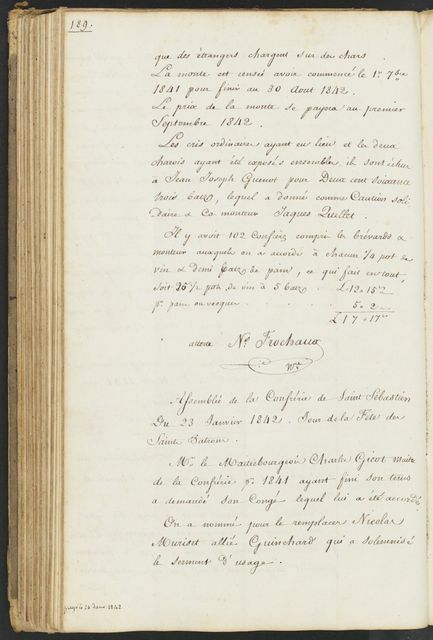 189.
que des étrangers chargent sur des chars.
La monte est censée avoir commencé le 1er 7bre
1841 pour finir au 30 Aout 1842.
Le prix de la monte se payera au premier
Septembre 1842.
Les criées ordinaires ayant eu lieu et les deux
ayant été exposés ensemble, ils sont échus
à Jean Joseph Guenot pour Deux cent soixante
trois batz, lequel a donné comme Caution soli
daire & Co monteur Jaques Quellet.
Il y avoit 102 Confières compris les brévards &
monteur auxquels on a accordé à chacun 1/4 pot de
vin & demi batz de pain, ce qui fait en tout,
soit 25 1/2 pots de vin à 5 batz £12 " 15
pr pain ou vecques 5 " 2 "
£17 " 17
atteste Ns Frochaux
Assemblée de la Confrérie de Saint Sébastien
Du 23 Janvier 1842. Jour de la Fête du
Saint Patron.
Mr le Maitrebourgeois Charles Gicot maitre
de la Confrérie pr 1841 ayant fini son terme
a demandé son Congé lequel lui a été accordé
On a nommé pour le remplacer Nicolas
Muriset allié Guinchard qui a solemnisé
le serment d'usage.